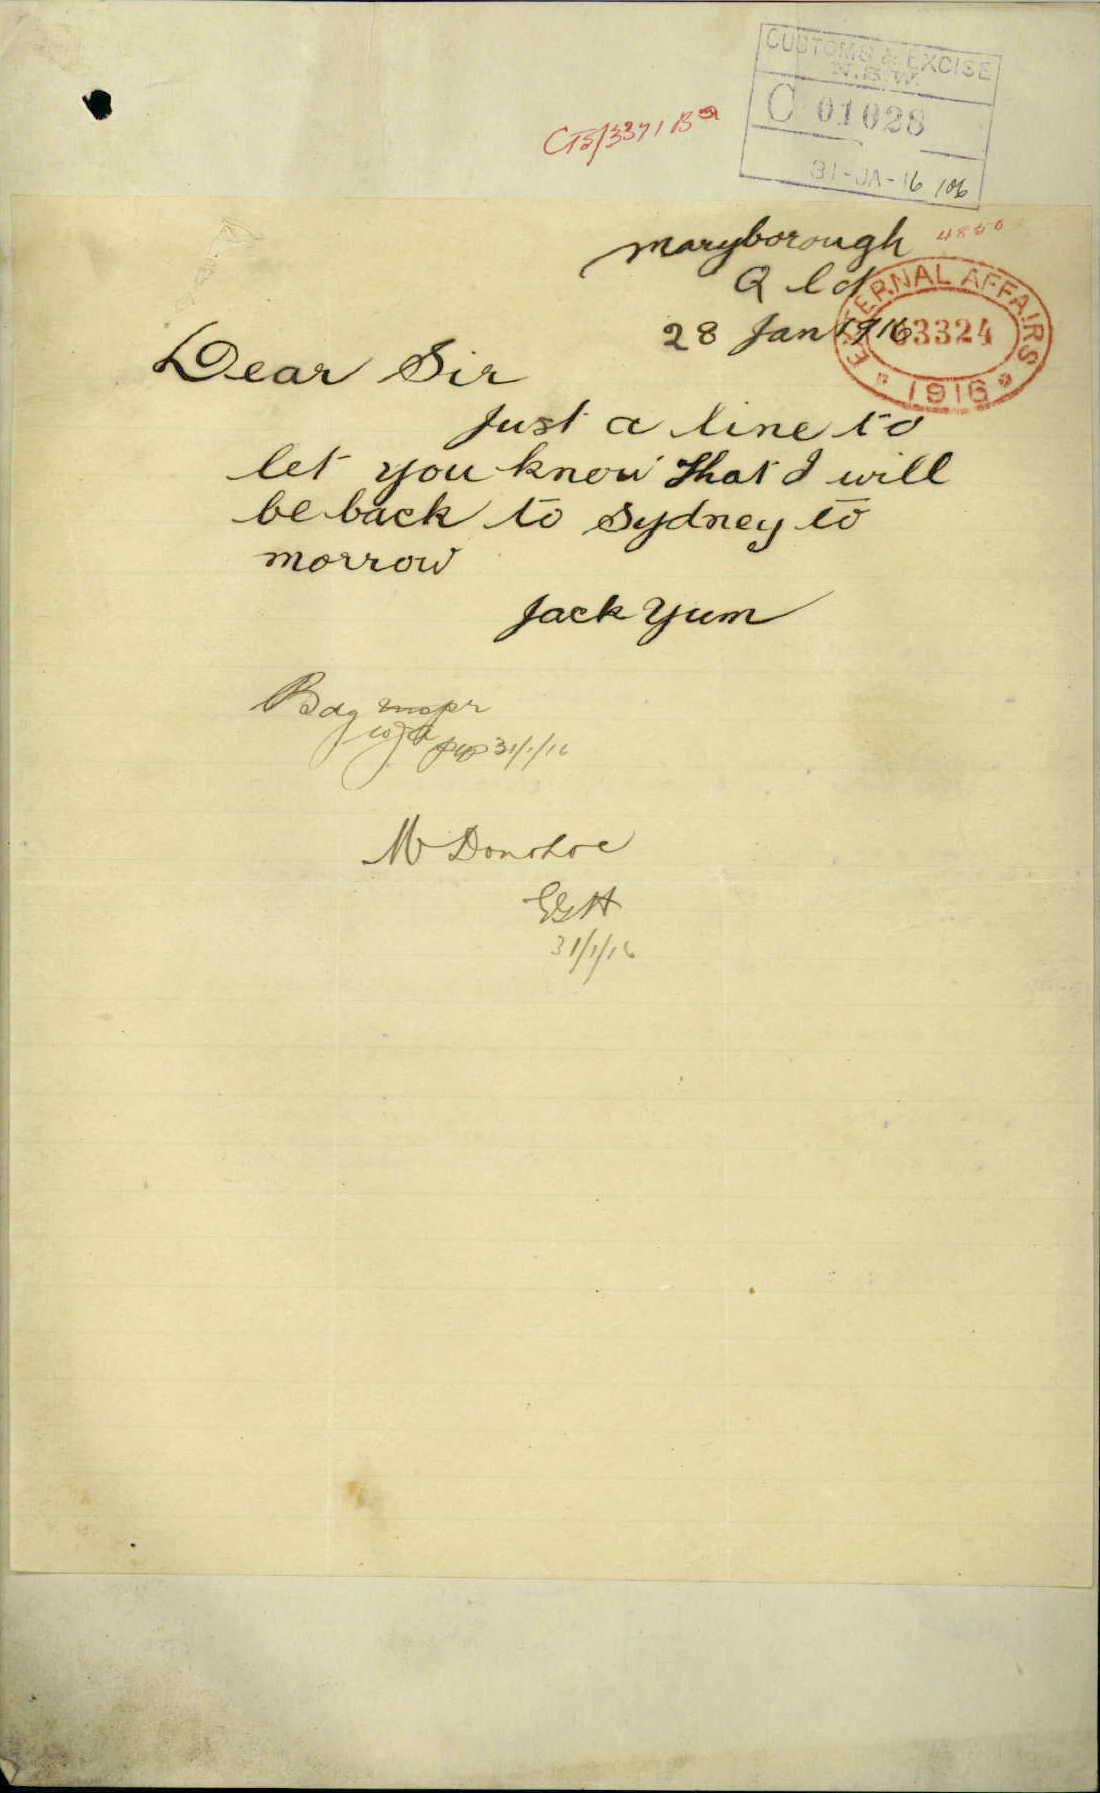 CUSTOMS & EXCISE
N.S.W.
C 01028
31-JA-16 106
CT5/3371 B
Maryborough
4850
Qld
28 Jan 1916
EXTERNAL AFFAIRS
63324
1916
Dear Sir
Just a line to
let you know that I will
be back to Sydney to
morrow
Jack Yum
31/1/16
Mr Donohoe
31/1/16